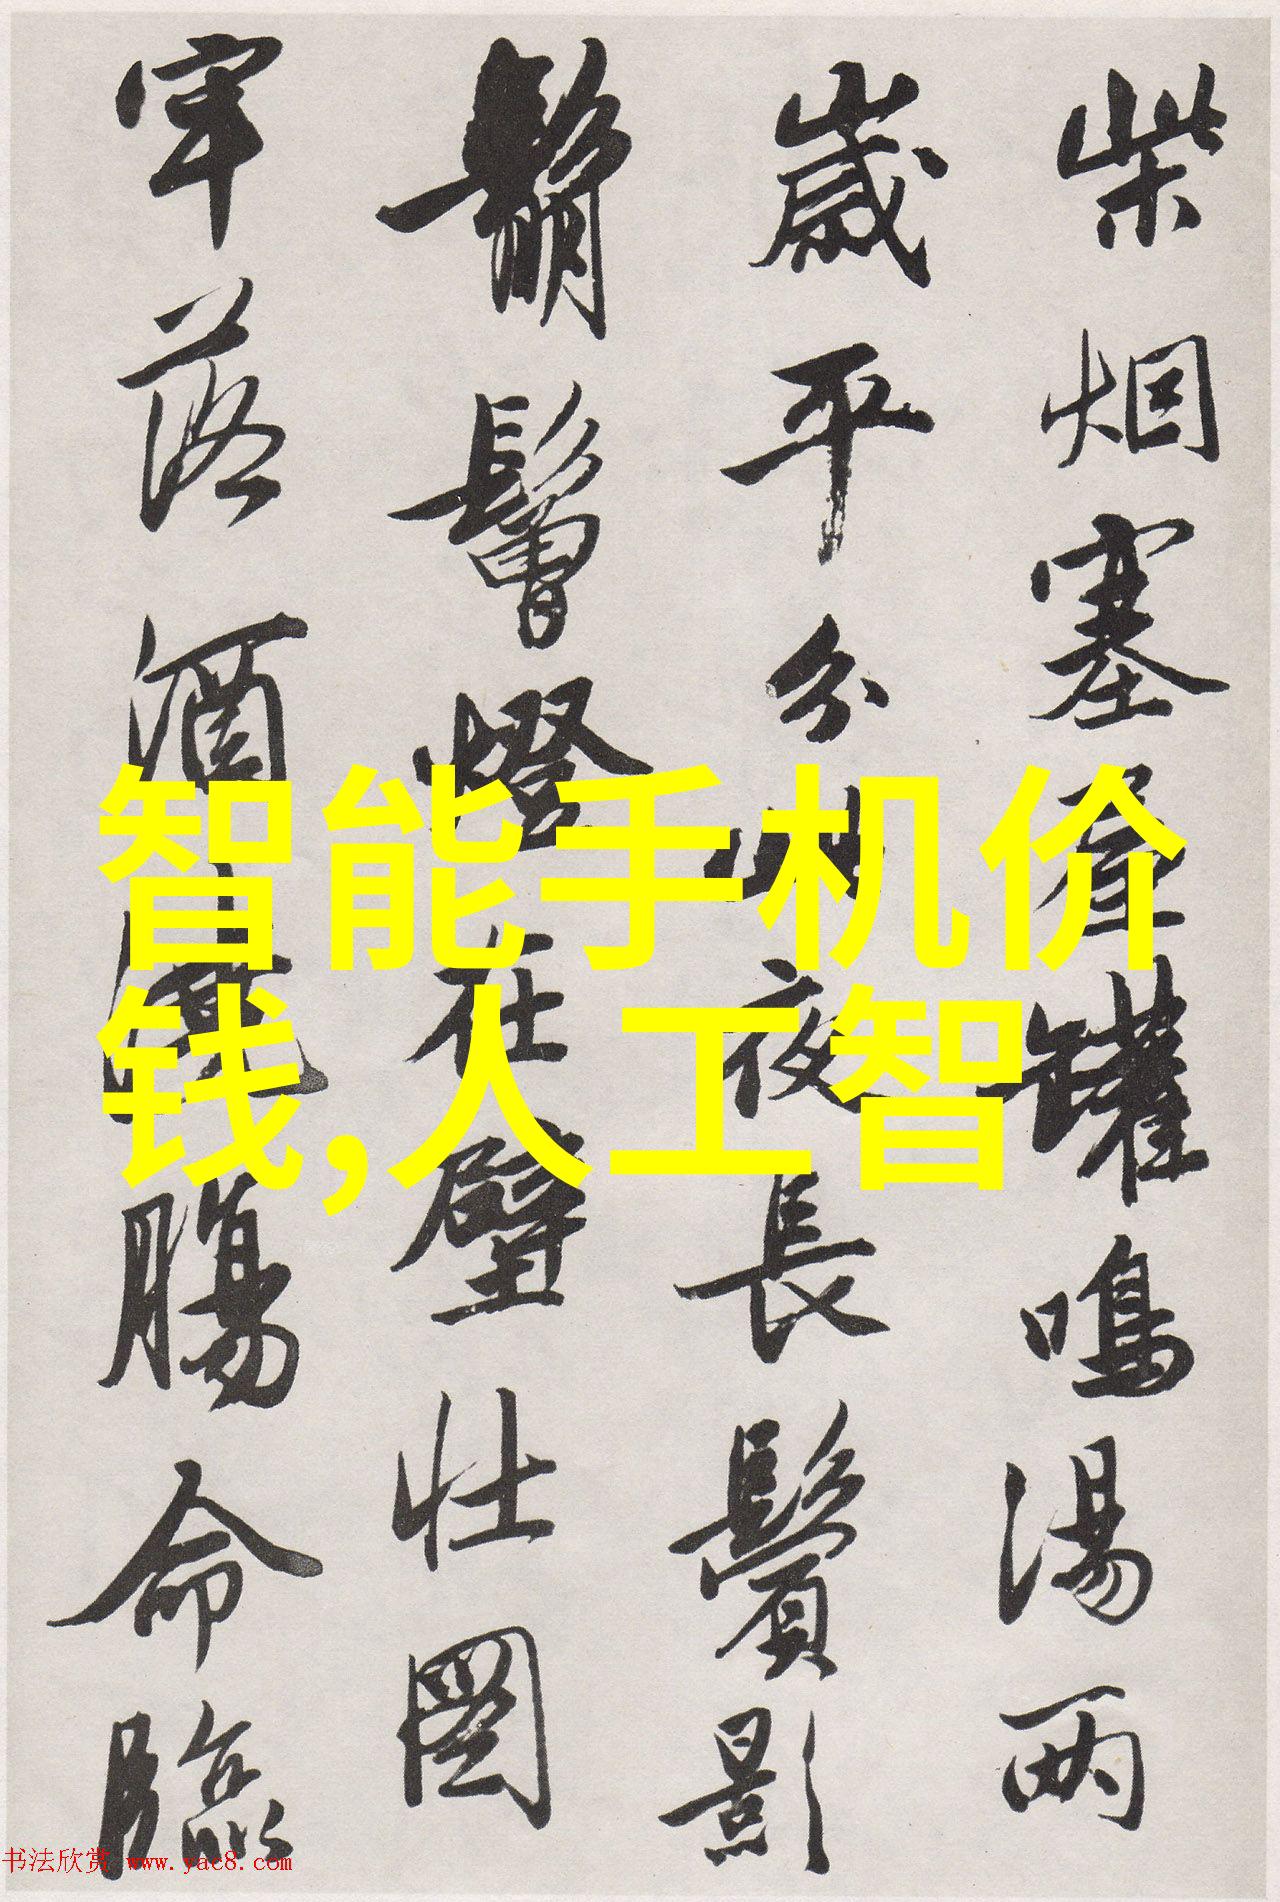 柴烟塞屋罐鸣汤两
歲平分夜長鬢影
鬅鬙燈在壁壮图
牢落酒腸命臨
智能手机价
钱,人工智
书法欣赏 www.yac8.com